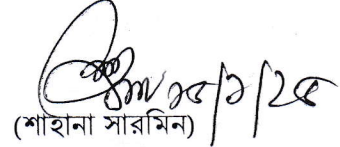 ১৫/১/২৫
(শাহানা সারমিন)